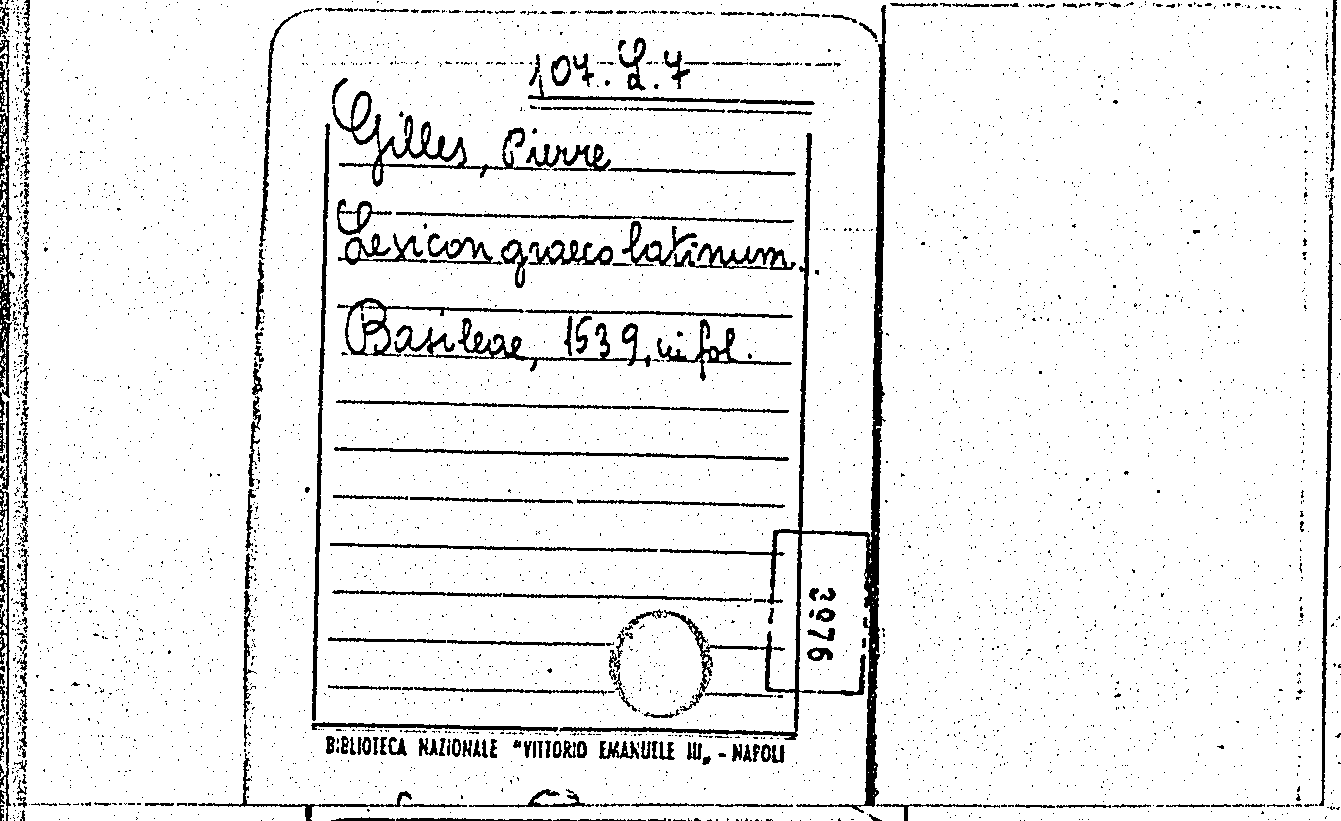 107.L.7
Gilles, Pierre
Lexicon graeco latinum.
Basileae, 1539, in fol.
3976
BIBLIOTECA NAZIONALE "VITTORIO EMANUELE III„ - NAPOLI